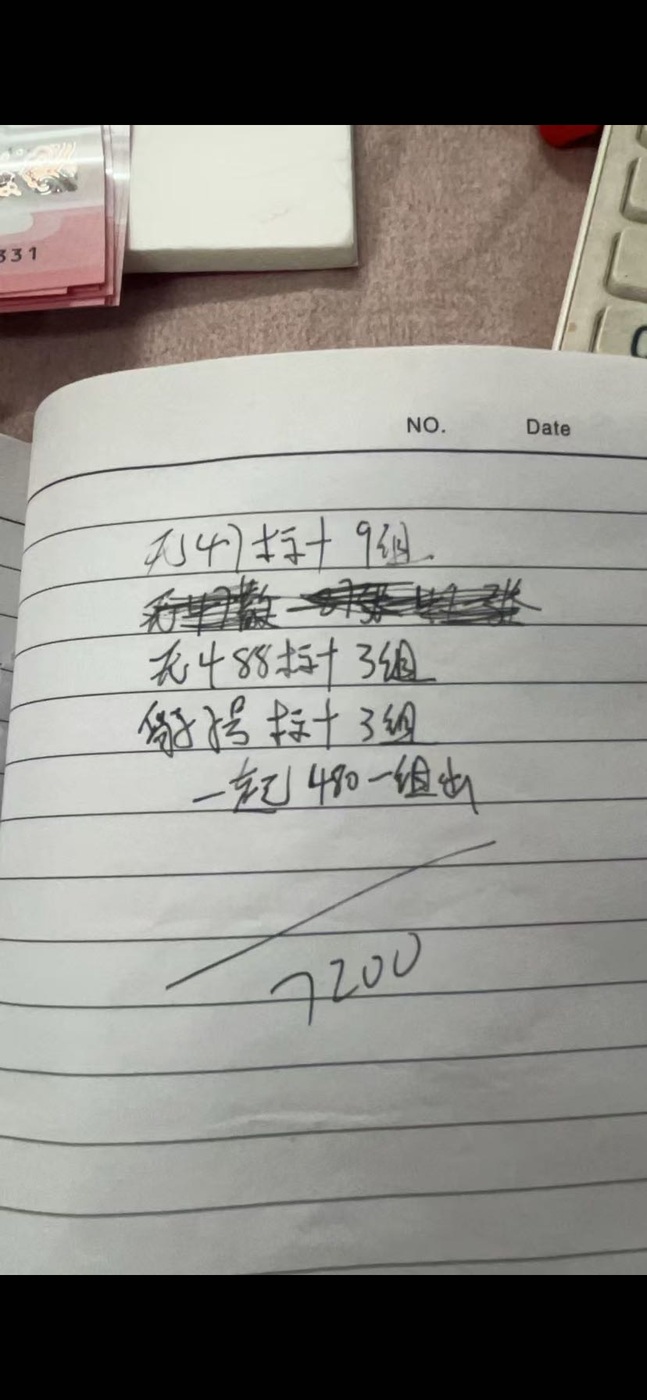 331
NO. Date
无47标十 9组
无488标十 3组
号 标十 3组
一起480一组出
7200